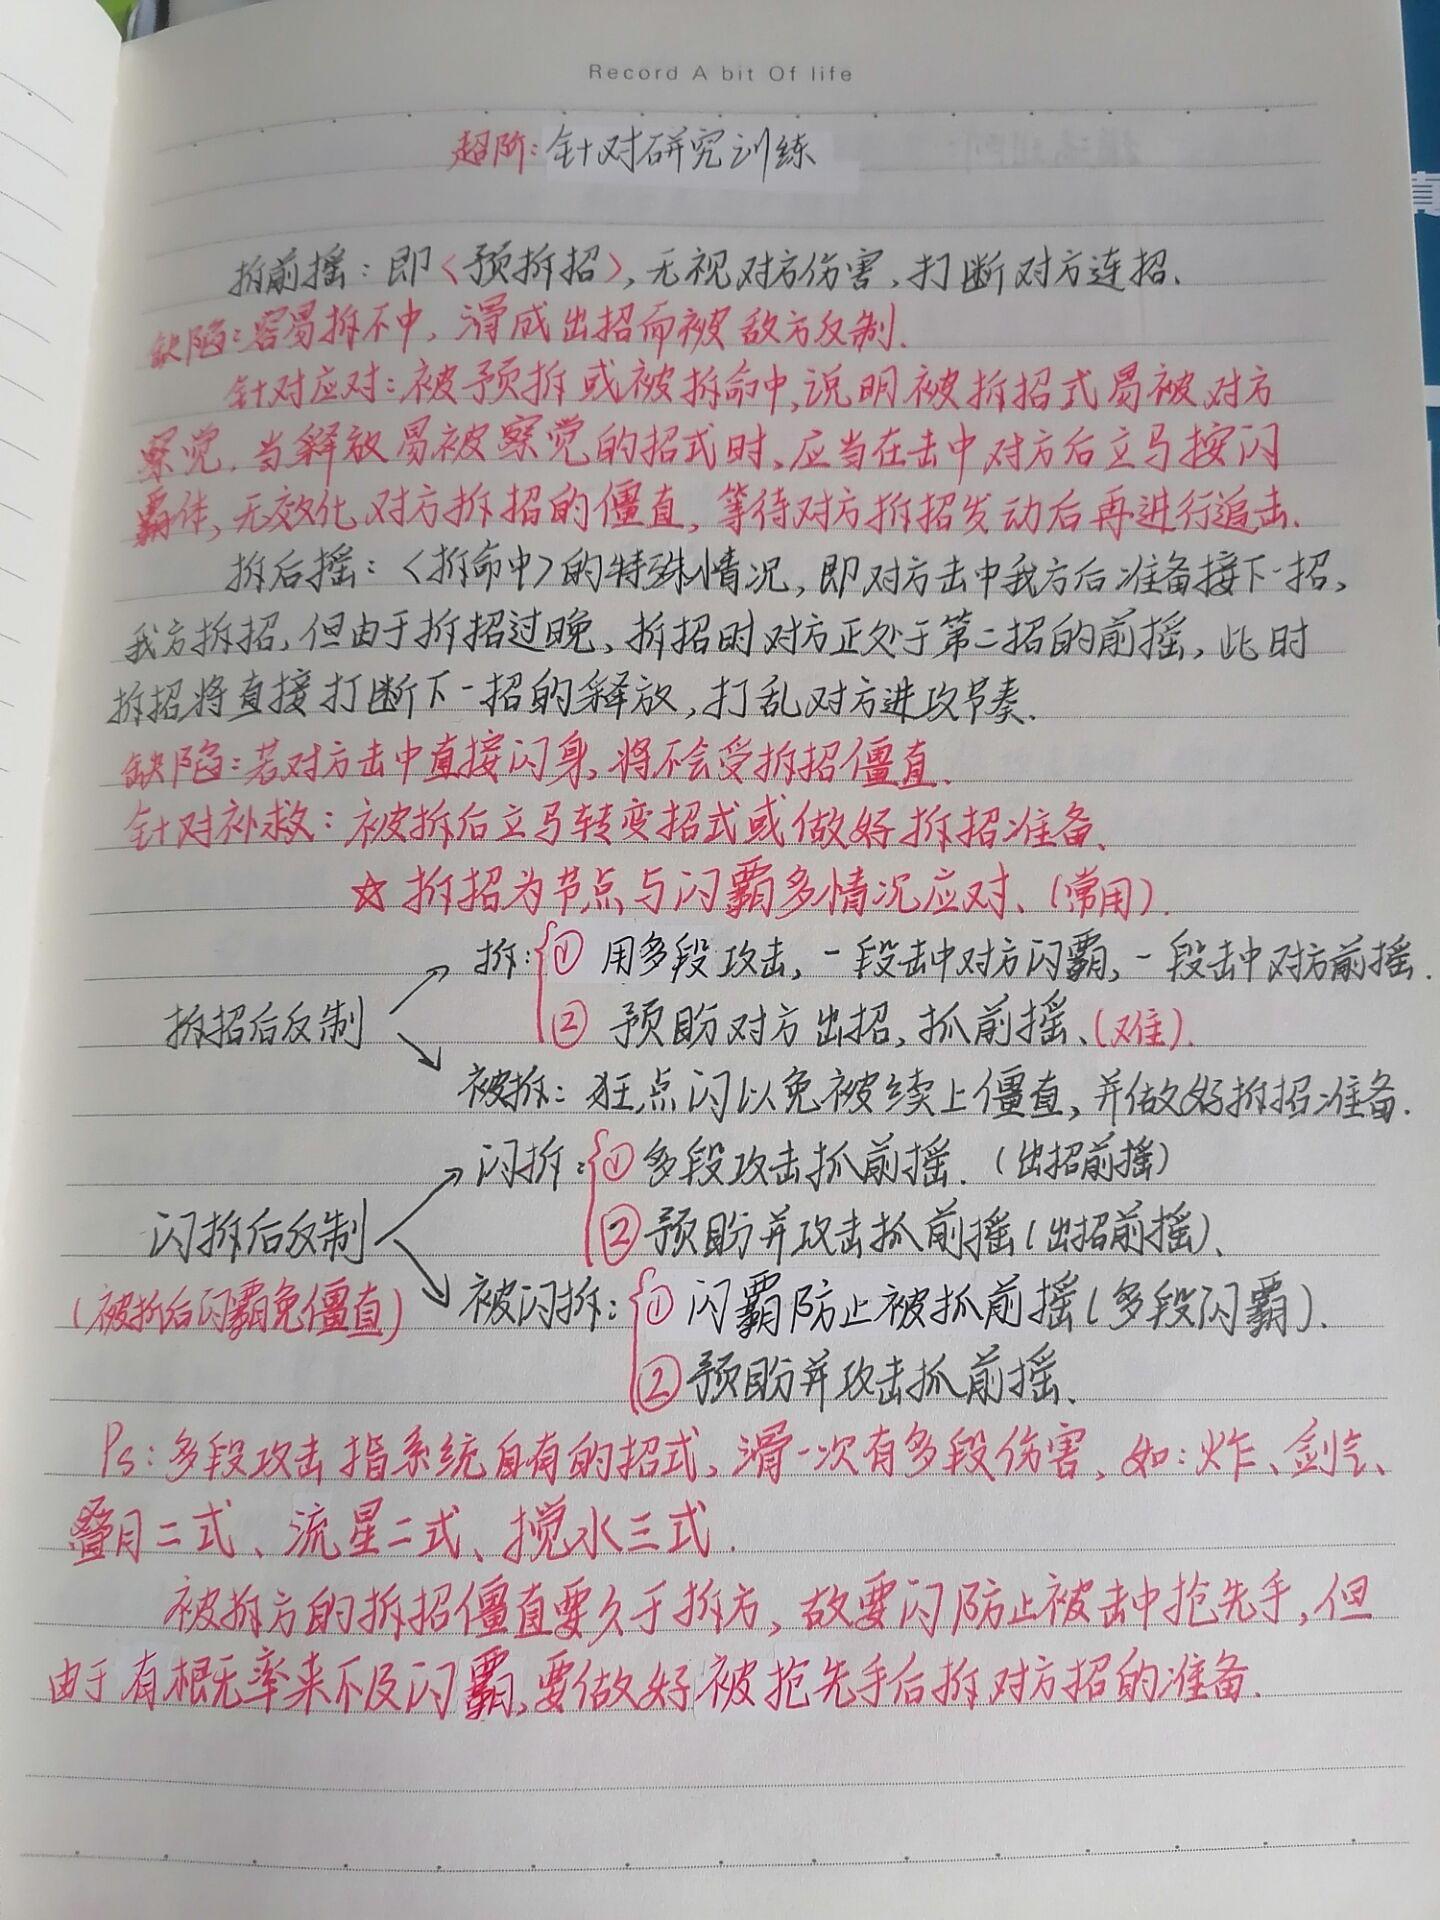 Record A bit Of life
超阶:针对研究训练
拆前摇:即<预拆招>,无视对方伤害,打断对方连招、
缺陷:容易拆不中,滑成出招而被敌方反制.
针对应对:被预拆或被拆命中,说明被拆招式易被对方
察觉.当释放易被察觉的招式时,应当在击中对方后立马按闪
霸体,无效化对方拆招的僵直,等待对方拆招发动后再进行追击.
拆后摇:<拆命中>的特殊情况,即对方击中我方后准备接下一招,
我方拆招,但由于拆招过晚,拆招时对方正处于第二招的前摇,此时
拆招将直接打断下一招的释放,打乱对方进攻节奏.
缺陷:若对方击中直接闪身,将不会受拆招僵直.
针对补救:被拆后立马转变招式或做好拆招准备、
☆拆招为节点与闪霸多情况应对、(常用).
拆:①用多段攻击,一段击中对方闪霸,一段击中对方前摇.
拆招后反制
②预盼对方出招,抓前摇、(难).
被拆:狂点闪以免被续上僵直,并做好拆招准备.
闪拆:①多段攻击抓前摇.(出招前摇)
闪拆后反制
②预盼并攻击抓前摇(出招前摇)、
(被拆后闪霸免僵直)
被闪拆:①闪霸防止被抓前摇(多段闪霸).
②预盼并攻击抓前摇、
Ps:多段攻击指系统自有的招式,滑一次有多段伤害,如:炸、剑气、
叠月二式、流星二式、搅水三式.
被拆方的拆招僵直要久于拆方,故要闪防止被击中抢先手,但
由于有概率来不及闪霸,要做好被抢先手后拆对方招的准备.